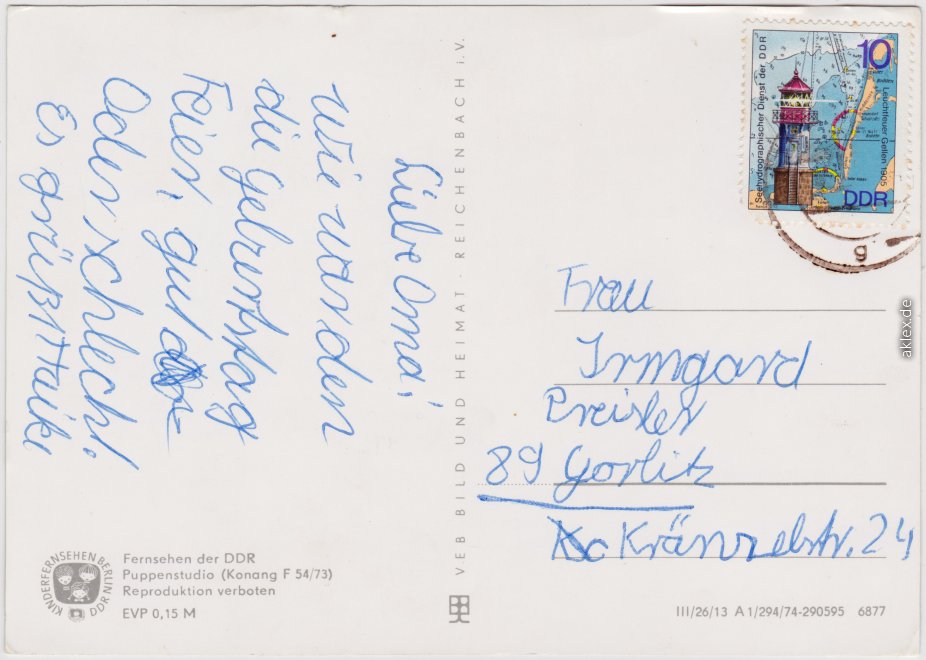 Liebe Oma!
Wie warden
die Geburtstag
Feier, gut
Oder schlecht.
Es grüßt Haike
VEB BILD UND HEIMAT · REICHENBACH i. V.
10
Seehydrographischer Dienst der DDR
Leuchtfeuer Gellen 1905
DDR
g
Frau
Irmgard
Preisler
89 Gorlitz
Kränzelstr. 24
KINDERFERNSEHEN BERLIN
DDR
Fernsehen der DDR
Puppenstudio (Konang F 54/73)
Reproduktion verboten
EVP 0,15 M
III/26/13 A 1/294/74-290595 6877
aklex.de